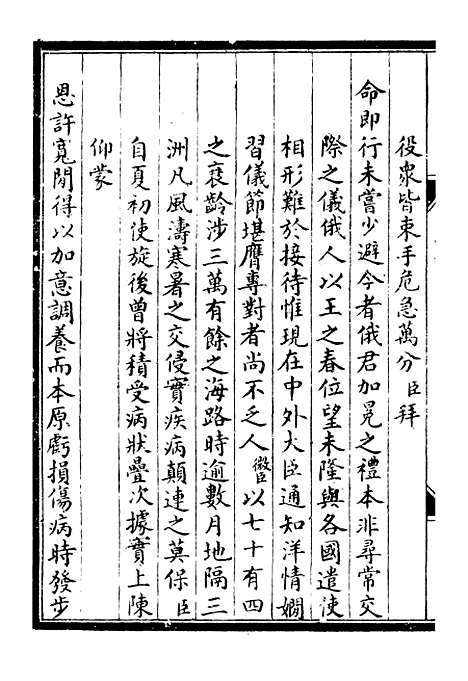 役衆皆束手危急萬分臣拜
命即行未嘗少避今者俄君加冕之禮本非尋常交
際之儀俄人以王之春位望未隆與各國遣使
相形難於接待惟現在中外大臣通知洋情嫺
習儀節堪膺專對者尚不乏人微臣以七十有四
之衰齡涉三萬有餘之海路時逾數月地隔三
洲凡風濤寒暑之交侵實疾病顛連之莫保臣
自夏初使旋後曾將積受病狀疊次據實上陳
仰蒙
恩許寬閒得以加意調養而本原虧損傷病時發步